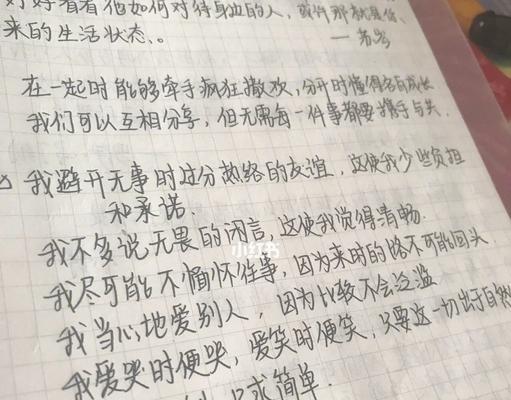 好好看看他如何对待身边的人,或许那就是你
来的生活状态、。
—苏岑
在一起时能够牵手疯狂撒欢,分开时懂得各自成长
我们可以互相分享,但无需每一件事都要携手与共.
我避开无事时过分热络的友谊,这使我少些负担
和承诺.
我不多说无畏的闲言,这使我觉得清畅.
我尽可能不缅怀往事,因为来时的路不可能回头
我当心地爱别人,因为比较不会泛滥
我爱哭时便哭,爱笑时便笑,只要这一切出于自然
求简单.
小红书